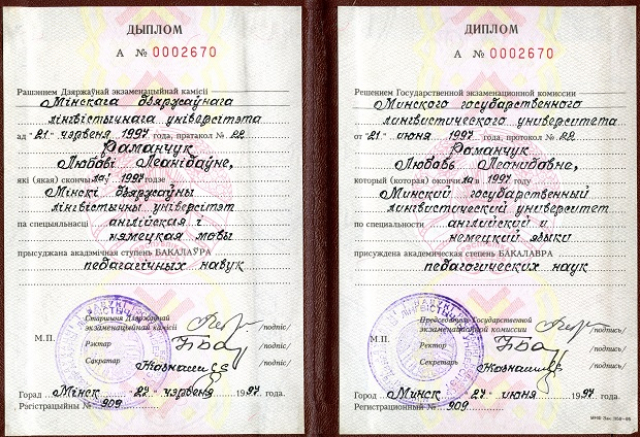 ДЫПЛОМ
А № 0002670
Рашэннем Дзяржаўнай экзаменацыйнай камісіі
Мінскага дзяржаўнага
лінгвістычнага універсітэта
ад "21" чэрвеня 1997 года, пратакол № 22
Раманчук
Любові Леанідаўне,
які (якая) скончы ла ў 1997 годзе
Мінскі дзяржаўны
лінгвістычны універсітэт
па спецыяльнасці англійская і
нямецкая мовы
прысуджана акадэмічная ступень БАКАЛАЎРА
педагагічных навук
Старшыня Дзяржаўнай
экзаменацыйнай камісіі /подпіс/
М.П.
Рэктар /подпіс/
Сакратар /подпіс/
Горад Мінск "27" чэрвеня 1997 года.
Рэгістрацыйны № 909
ДИПЛОМ
А № 0002670
Решением Государственной экзаменационной комиссии
Минского государственного
лингвистического университета
от "21" июня 1997 года, протокол № 22
Романчук
Любовь Леонидовне,
который (которая) окончи ла в 1997 году
Минский государственный
лингвистический университет
по специальности английский и
немецкий языки
присуждена академическая степень БАКАЛАВРА
педагогических наук
Председатель Государственной
экзаменационной комиссии /подпись/
М.П.
Ректор /подпись/
Секретарь /подпись/
Город Минск "27" июня 1997 года.
Регистрационный № 909